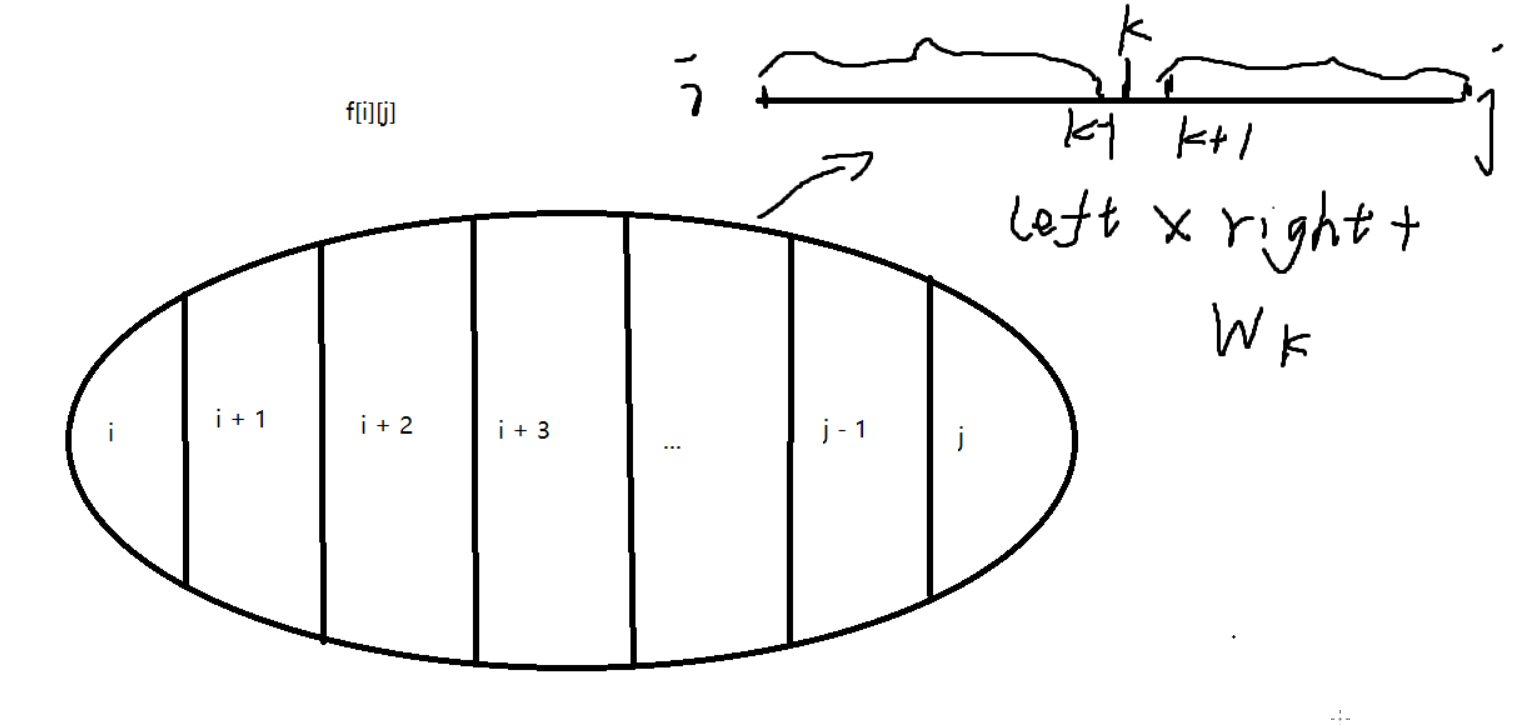 k
i
j
f[i][j]
k-1 k+1
left × right +
W k
i i + 1 i + 2 i + 3 ... j - 1 j